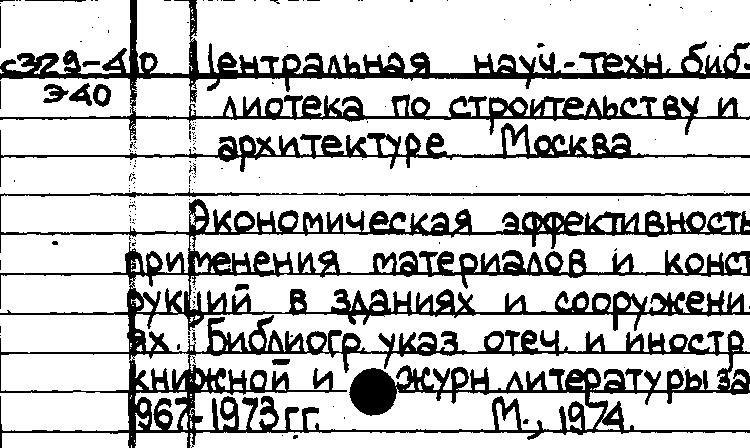 с329-40 Центральная науч.-техн. биб-
Э40 лиотека по строительству и
архитектуре. Москва.
Экономическая эффективность
применения материалов и конст
рукций в зданиях и сооружени-
ях. Библиогр. указ. отеч. и иностр.
книжной и журн. литературы за
1967-1973 гг. М., 1974.